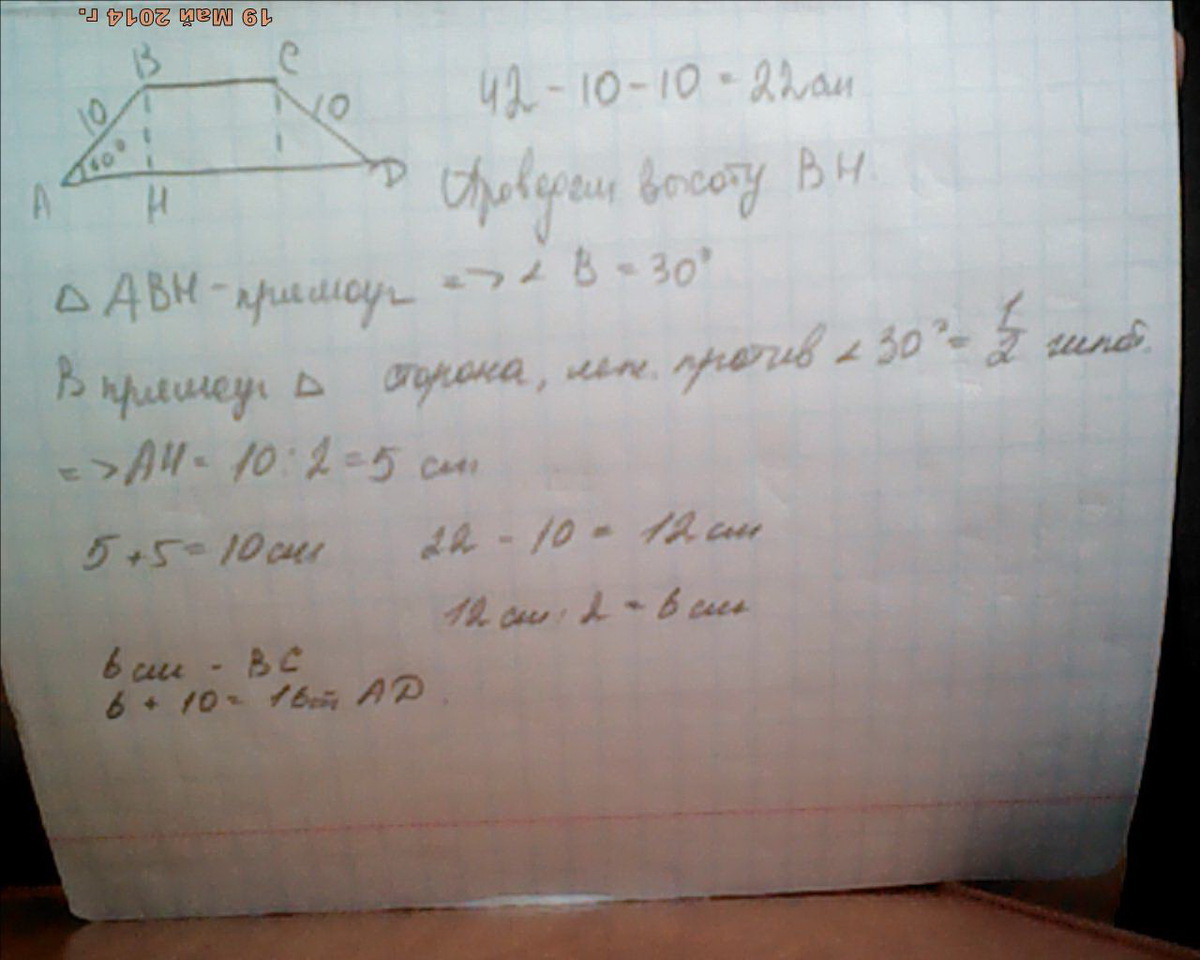 19 Май 2014 г.
B C
10 10
60°
A H D
42 - 10 - 10 = 22 см
Проведем высоту BH.
△ ABH - прямоуг => ∠ B = 30°
В прямоуг △ сторона, леж. против ∠ 30° = 1/2 гипот.
=> AH = 10 : 2 = 5 см
5 + 5 = 10 см 22 - 10 = 12 см
12 см : 2 = 6 см
6 см - BC
6 + 10 = 16 см AD.